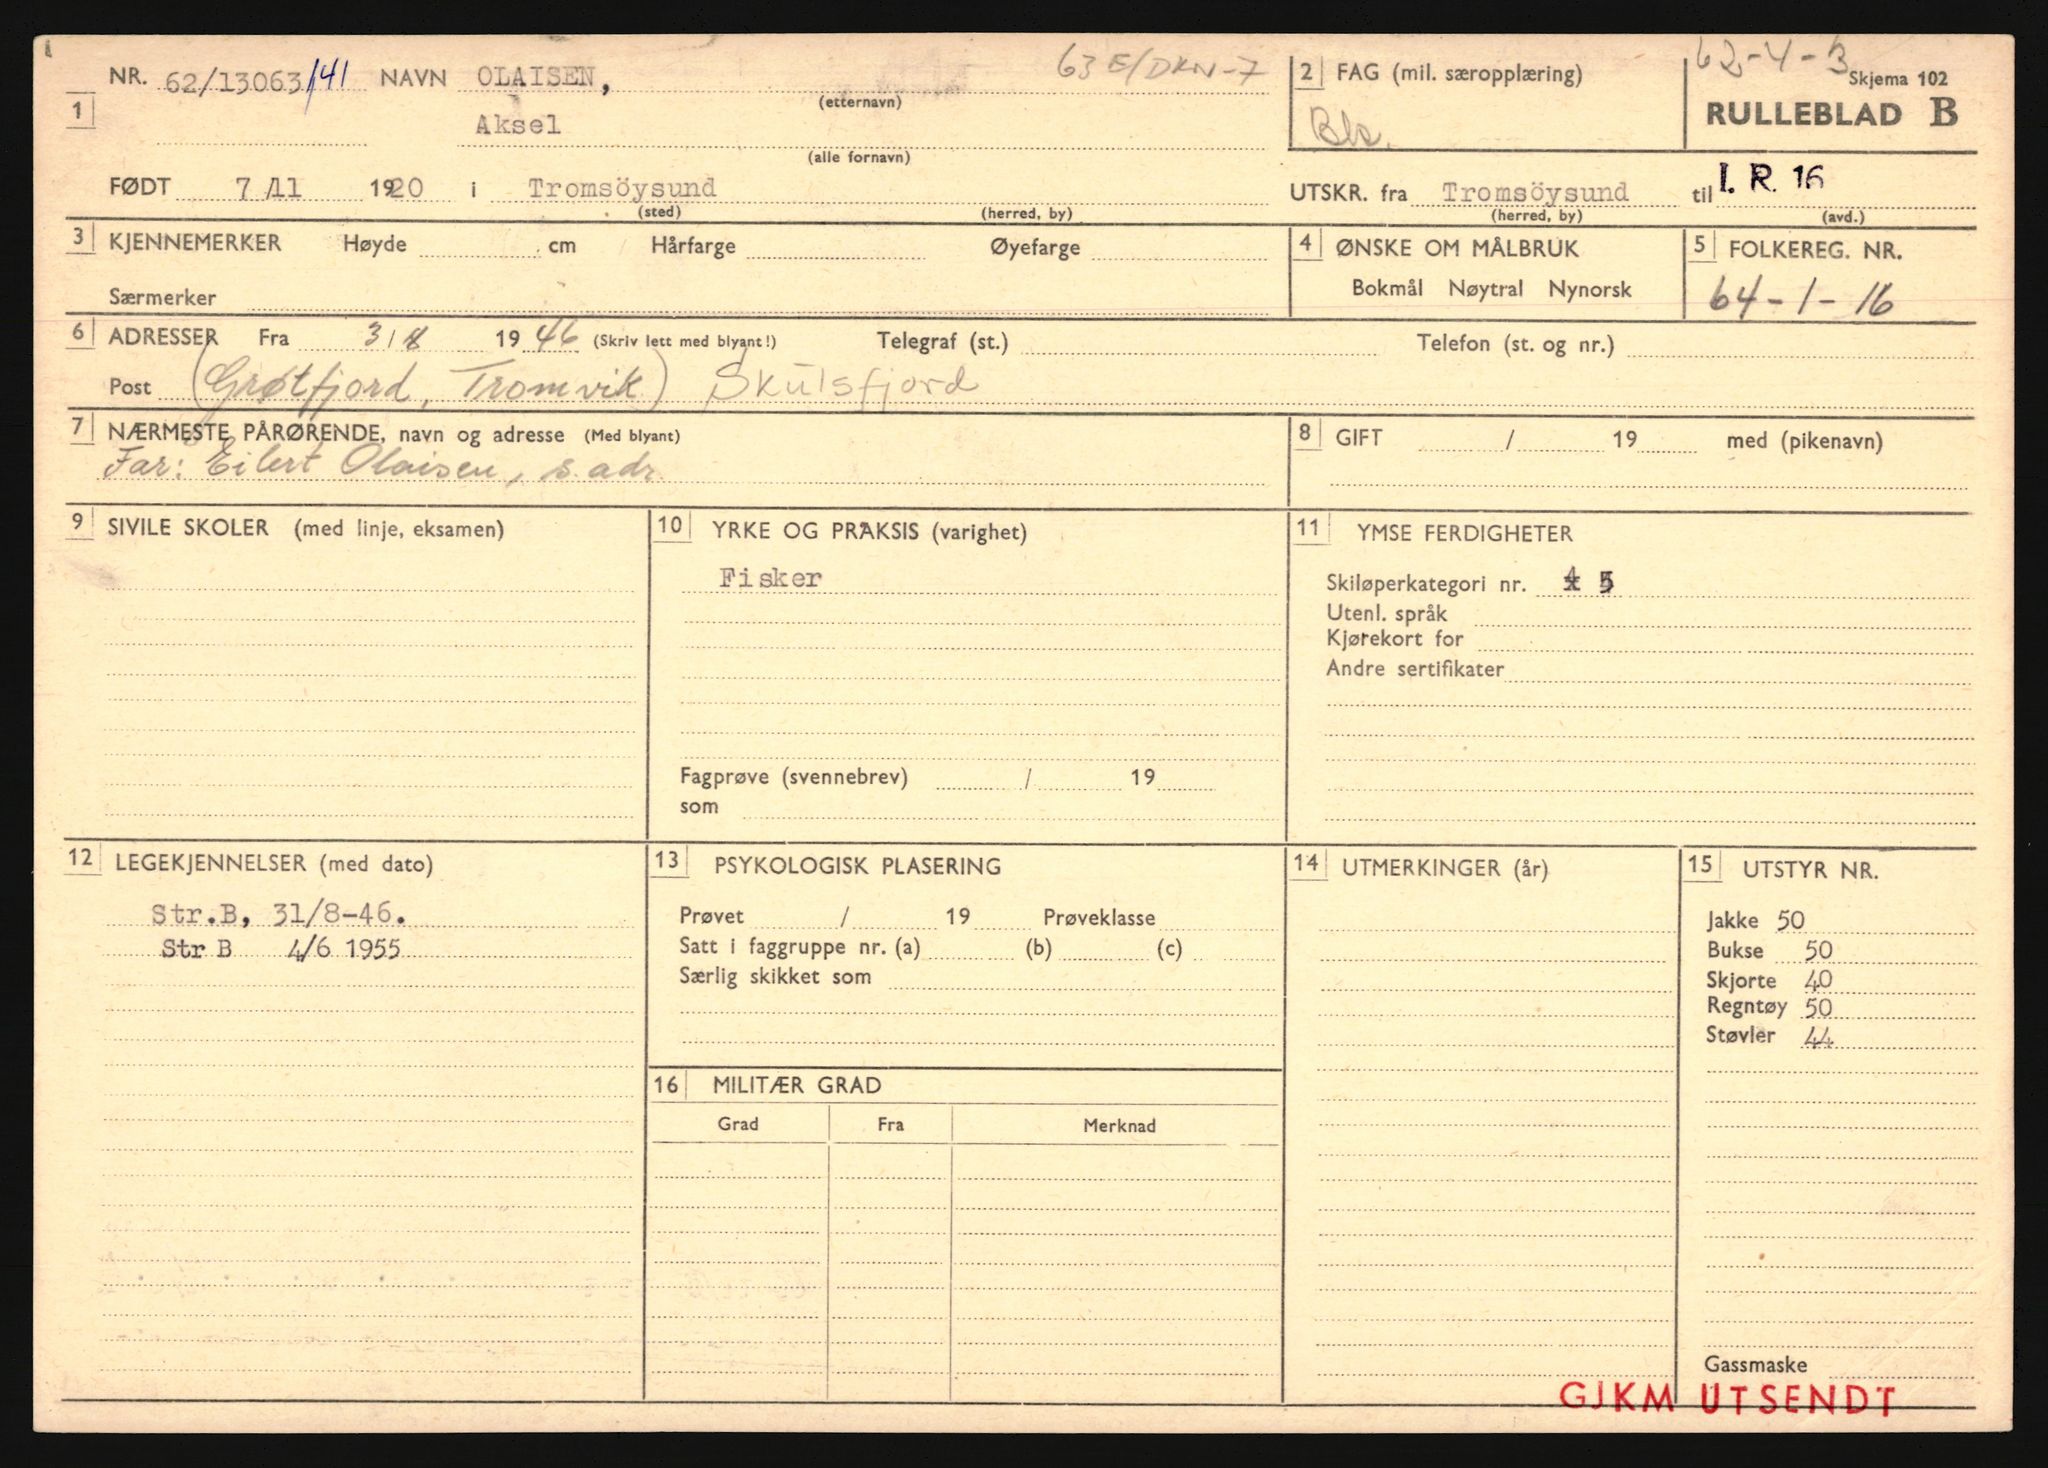 63E/DKN-7
62-4-3
NR. 62/13063/41 NAVN OLAISEN,
(etternavn)
2 FAG (mil. særopplæring)
Skjema 102
1
Aksel
(alle fornavn)
RULLEBLAD B
FØDT 7/11 1920 i Tromsöysund
(sted) (herred, by)
UTSKR. fra Tromsöysund til I. R. 16
(herred, by) (avd.)
3 KJENNEMERKER Høyde cm Hårfarge Øyefarge
Særmerker
4 ØNSKE OM MÅLBRUK
Bokmål Nøytral Nynorsk
5 FOLKEREG. NR.
64-1-16
6 ADRESSER Fra 3/8 1946 (Skriv lett med blyant!) Telegraf (st.) Telefon (st. og nr.)
Post (Grøtfjord, Tromvik) Skulsfjord
7 NÆRMESTE PÅRØRENDE, navn og adresse (Med blyant)
Far: Eilert Olaisen, s. adr.
8 GIFT / 19 med (pikenavn)
9 SIVILE SKOLER (med linje, eksamen)
10 YRKE OG PRAKSIS (varighet)
Fisker
Fagprøve (svennebrev) / 19
som
11 YMSE FERDIGHETER
Skiløperkategori nr. 4 5
Utenl. språk
Kjørekort for
Andre sertifikater
12 LEGEKJENNELSER (med dato)
Str.B, 31/8-46.
Str B 4/6 1955
13 PSYKOLOGISK PLASERING
Prøvet / 19 Prøveklasse
Satt i faggruppe nr. (a) (b) (c)
Særlig skikket som
14 UTMERKINGER (år)
15 UTSTYR NR.
Jakke 50
Bukse 50
Skjorte 40
Regntøy 50
Støvler 44
16 MILITÆR GRAD
Grad Fra Merknad
Gassmaske
GJKM UTSENDT